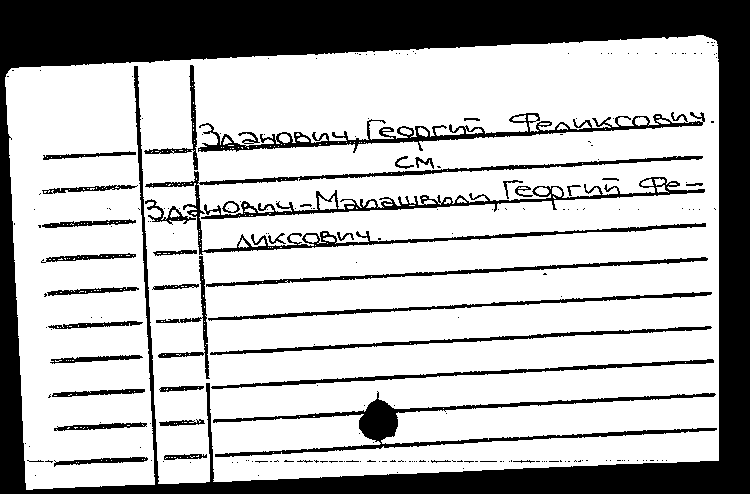 Зданович, Георгий Феликсович.
см.
Зданович-Маиашвили, Георгий Фе-
ликсович.